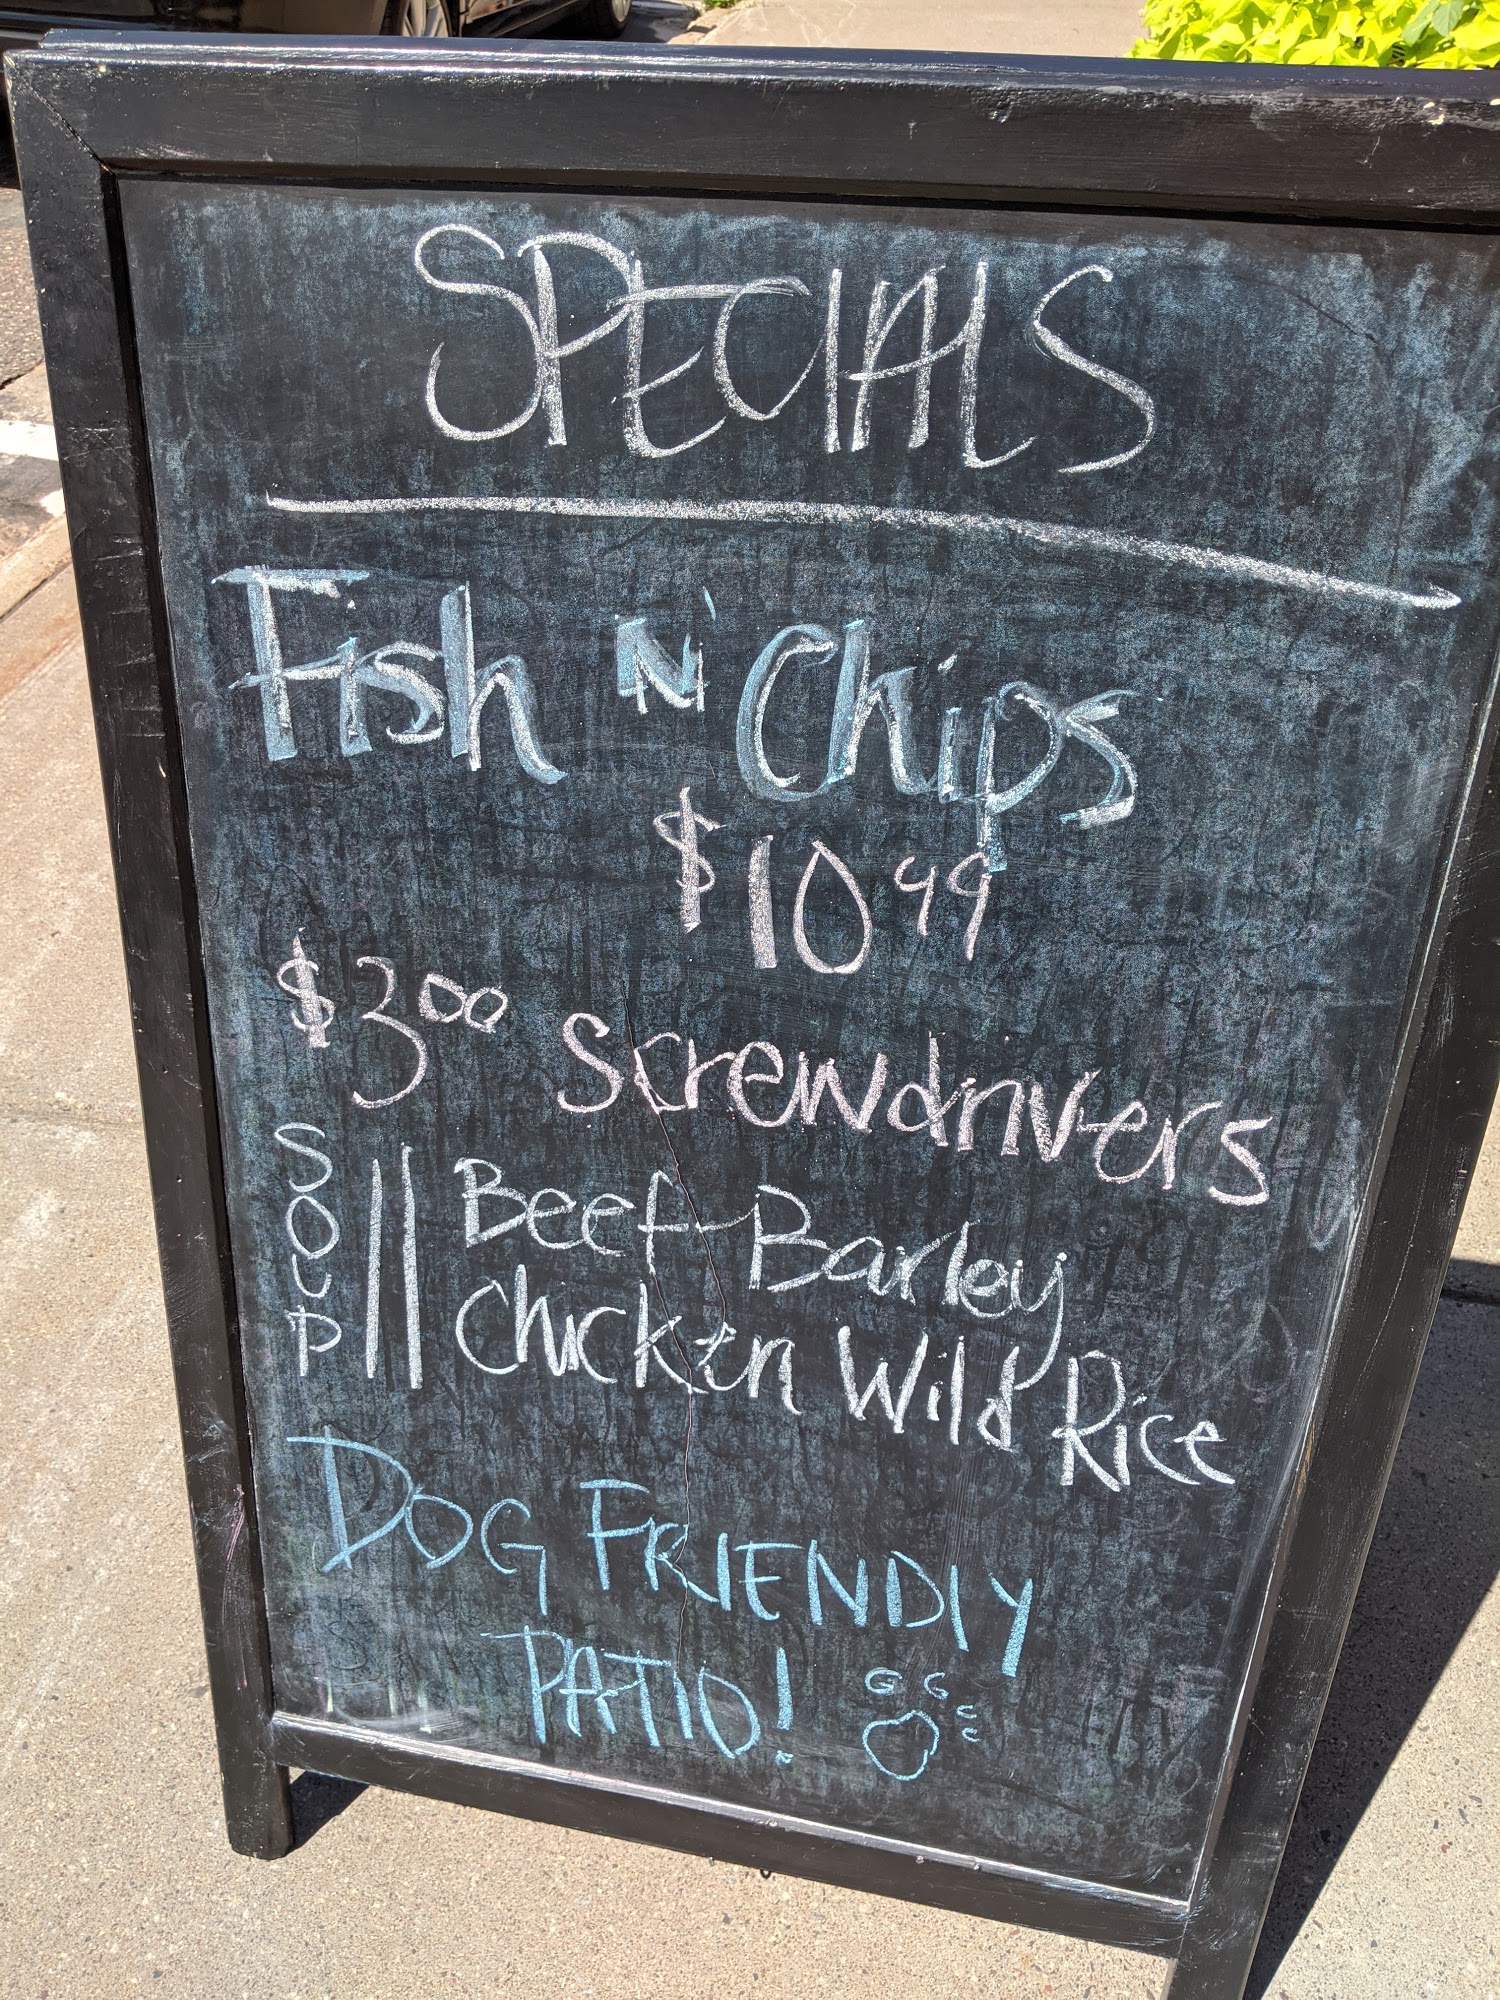 SPECIALS
Fish N' Chips
$10 99
$3 00 Screwdrivers
SOUP
Beef Barley
Chicken Wild Rice
DOG FRIENDLY
PATIO!